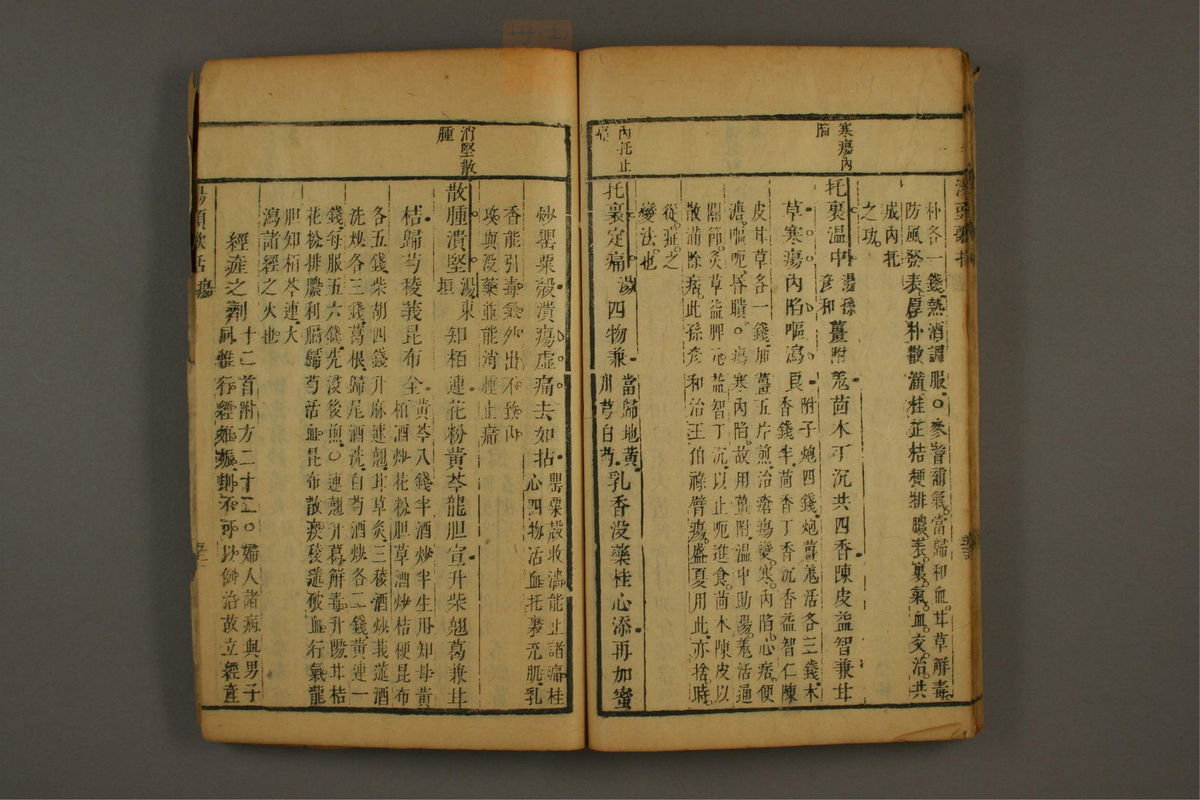 湯頭歌括
朴各一錢熱酒調服。○參耆補氣。當歸和血。甘草解毒
防風發表厚朴散滿桂芷桔梗排膿表。裏。氣。血。交。治。共
成內托
之功。
寒瘍內陷
托裏温中湯孫彥和薑附羗茴木丁沉共四香陳皮益智兼甘
草寒瘍內陷嘔瀉良附子炮四錢炮薑羗活各三錢木
香錢半茴香丁香沉香益智仁陳
皮甘草各一錢加薑五片煎治瘡瘍變寒。內陷心痞。便
溏。嘔呃。昏瞶。○瘍寒內陷。故用薑附。温中助陽。羗活通
關節。炙草益脾元益智丁沉。以止呃進食。茴木陳皮以
散滿除痞。此孫彥和治王伯祿臂瘍。盛夏用此。亦捨時。
從。症。之
變。法。也
內托止痛
托裏定痛湯四物兼當歸地黃川芎白芍乳香没藥桂心添再加蜜
炒罌粟殼潰瘍虛痛去如拈罌粟殼收濇能止諸痛桂
心四物活血托裏充肌。乳
香能引毒氣外出不致內
攻與没藥並能消腫止痛
消堅散腫
散腫潰堅湯東垣知栢連花粉黃芩龍胆宣升柴翹葛兼甘
桔歸芍稜莪昆布全黃芩八錢半酒炒半生用知母黃
栢酒炒花粉胆草酒炒桔梗昆布
各五錢柴胡四錢升麻連翹甘草炙三稜酒炒莪蓬酒
洗炒各三錢葛根歸尾酒洗白芍酒炒各二錢黃連一
錢每服五六錢先浸後煎○連翹升葛解毒升陽甘桔
花粉排膿利膈歸芍活血昆布散痰稜蓬破血行氣龍
胆知栢芩連大
瀉諸經之火也
經產之劑十二首附方二十二○婦人諸病與男子
同惟行經姙娠則不可以例治故立經產
湯頭歌括 瘍